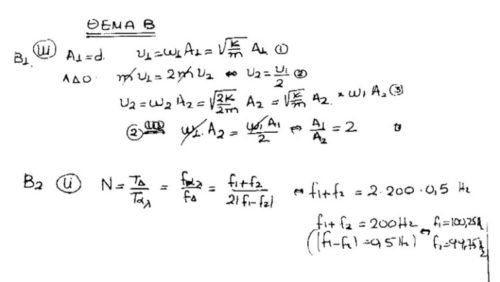 ΘΕΜΑ Β
B1. iii A1 = d. υ1 = ω1 A1 = √(K/m) A1 ①
ΑΔΟ m υ1 = 2m υ2 ⇔ υ2 = υ1/2 ②
υ2 = ω2 A2 = √(2K/2m) A2 = √(K/m) A2 = ω1 A2 ③
② ω1 . A2 = ω1 A1/2 ⇔ A1/A2 = 2
B2 ii N = TΔ/Tαλ = fαλ/fΔ = f1+f2/2|f1-f2| ⇔ f1+f2 = 2·200·0,5 Hz
f1+f2 = 200Hz ⇔ f1=100,25Hz
|f1-f2| = 0,5Hz f2=99,75Hz